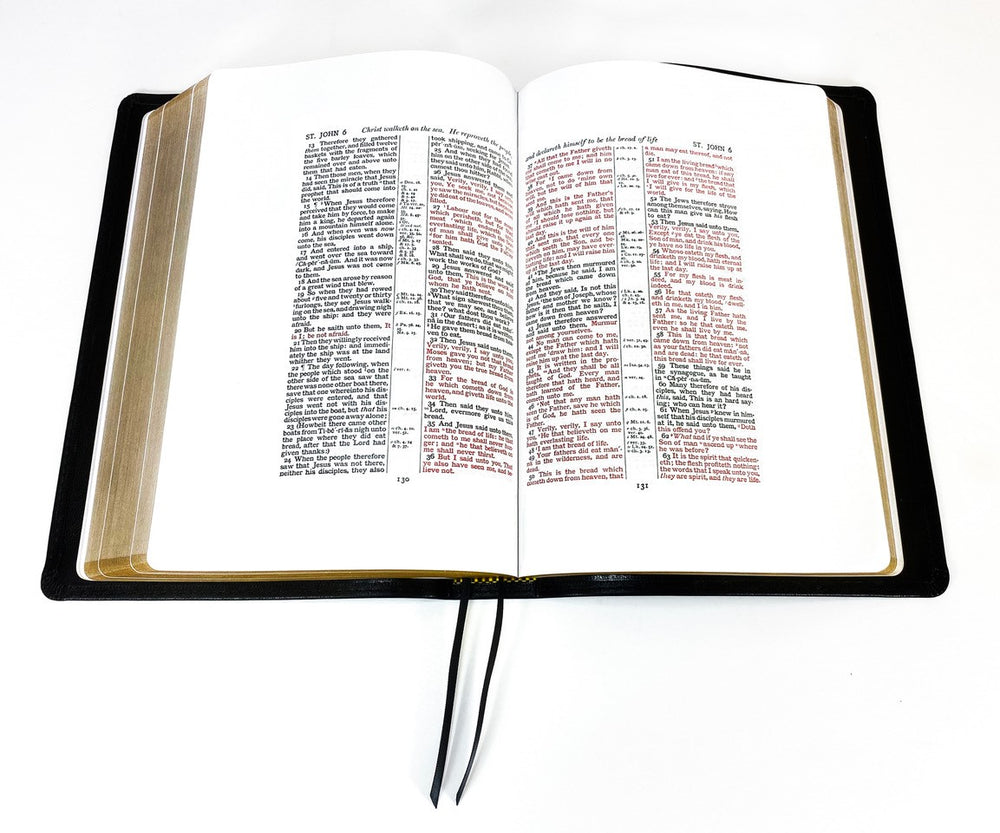 ST. JOHN 6 Christ walketh on the sea. He reproveth the people
13 Therefore they gathered
them together, and filled twelve
baskets with the fragments of
the five barley loaves, which
remained over and above unto
them that had eaten.
14 Then those men, when they
had seen the miracle that Jesus
did, said, This is of a truth that
prophet that should come into
the world.
15 ¶ When Jesus therefore
perceived that they would come
and take him by force, to make
him a king, he departed again
into a mountain himself alone.
16 And when even was now
come, his disciples went down
unto the sea.
17 And entered into a ship,
and went over the sea toward
Că-pẽr´-nă-ŭm. And it was now
dark, and Jesus was not come
18 And the sea arose by reason
of a great wind that blew.
19 So when they had rowed
about five and twenty or thirty
furlongs, they see Jesus walk-
ing on the sea, and drawing nigh
unto the ship: and they were
afraid.
20 But he saith unto them, It
is I; be not afraid.
21 Then they willingly received
him into the ship: and immedi-
ately the ship was at the land
whither they went.
22 ¶ The day following, when
the people which stood on the
other side of the sea saw that
there was none other boat there,
save that one whereinto his dis-
ciples were entered, and that
Jesus went not with his dis-
ciples into the boat, but that his
disciples were gone away alone;
23 (Howbeit there came other
boats from Tī-bē´-rĭ-ăs nigh unto
the place where they did eat
bread, after that the Lord had
given thanks:)
24 When the people therefore
saw that Jesus was not there,
neither his disciples, they also
took shipping, and came to
25 And when they had
him on the other side
they said unto him, Rabbi,
camest thou hither?
26 Jesus answered
Verily, verily, I say
you, Ye seek me,
ye saw the miracles, but
ye did eat of the loaves,
27 Labour not for the
which perisheth, but
meat which endureth
everlasting life, which
of man shall give unto
for him hath God the
sealed.
28 Then said they unto him,
What shall we do, that we
work the works of God?
29 Jesus answered and said
unto them, This is the work
God, that ye believe on
whom he hath sent.
30 They said therefore unto him,
What sign shewest thou
that we may see, and believe
thee? what dost thou
31 Our fathers did eat
in the desert; as it is written,
He gave them bread from
ven to eat.
32 Then Jesus said unto
Verily, verily, I say unto
Moses gave you not that bread
from heaven; but my Father
giveth you the true bread
heaven.
33 For the bread of God
he which cometh down from
heaven, and giveth life unto
world.
34 Then said they unto
Lord, evermore give us this
bread.
35 And Jesus said unto them,
I am the bread of life: he that
cometh to me shall never hun-
ger; and he that believeth on
me shall never thirst.
36 But I said unto you, That
ye also have seen me, and be-
lieve not.
130
and declareth himself to be the bread of life ST. JOHN 6
All that the Father giveth
shall come to me; and him
cometh to me I will in no
For I came down from
not to do mine own
but the will of him that
And this is the Father's
which hath sent me, that
all which he hath given
I should lose nothing, but
should raise it up again at the
And this is the will of him
that sent me, that every one
which seeth the Son, and be-
on him, may have ever-
lasting life: and I will raise him
up at the last day.
The Jews then murmured
at him, because he said, I am
the bread which came down
from heaven.
42 And they said, Is not this
Jesus, the son of Joseph, whose
father and mother we know?
how is it then that he saith, I
came down from heaven?
43 Jesus therefore answered
and said unto them, Murmur
not among yourselves.
44 No man can come to me,
except the Father which hath
sent me draw him: and I will
raise him up at the last day.
45 It is written in the pro-
phets, And they shall be all
taught of God. Every man
therefore that hath heard, and
hath learned of the Father,
cometh unto me.
46 Not that any man hath
seen the Father, save he which
is of God, he hath seen the
Father.
47 Verily, verily, I say unto
you, He that believeth on me
hath everlasting life.
48 I am that bread of life.
49 Your fathers did eat măn´-
nă in the wilderness, and are
dead.
50 This is the bread which
cometh down from heaven, that
a man may eat thereof, and not
die.
51 I am the living bread which
came down from heaven: if any
man eat of this bread, he shall
live for ever: and the bread that
I will give is my flesh, which
I will give for the life of the
world.
52 The Jews therefore strove
among themselves, saying, How
can this man give us his flesh
to eat?
53 Then Jesus said unto them,
Verily, verily, I say unto you,
Except ye eat the flesh of the
Son of man, and drink his blood,
ye have no life in you.
54 Whoso eateth my flesh, and
drinketh my blood, hath eternal
life; and I will raise him up at
the last day.
55 For my flesh is meat in-
deed, and my blood is drink
indeed.
56 He that eateth my flesh,
and drinketh my blood, dwelleth
in me, and I in him.
57 As the living Father hath
sent me, and I live by the
Father: so he that eateth me,
even he shall live by me.
58 This is that bread which
came down from heaven: not
as your fathers did eat măn´-nă,
and are dead: he that eateth of
this bread shall live for ever.
59 These things said he in
the synagogue, as he taught
in Că-pẽr´-nă-ŭm.
60 Many therefore of his dis-
ciples, when they had heard
this, said, This is an hard say-
ing; who can hear it?
61 When Jesus knew in him-
self that his disciples murmured
at it, he said unto them, Doth
this offend you?
62 What and if ye shall see the
Son of man ascend up where
he was before?
63 It is the spirit that quicken-
eth; the flesh profiteth nothing:
the words that I speak unto you,
they are spirit, and they are life.
131